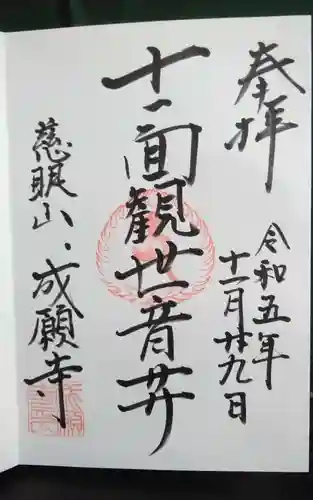 奉拝
令和五年
十一月廿九日
十一面観世音菩
慈眼山、成願寺